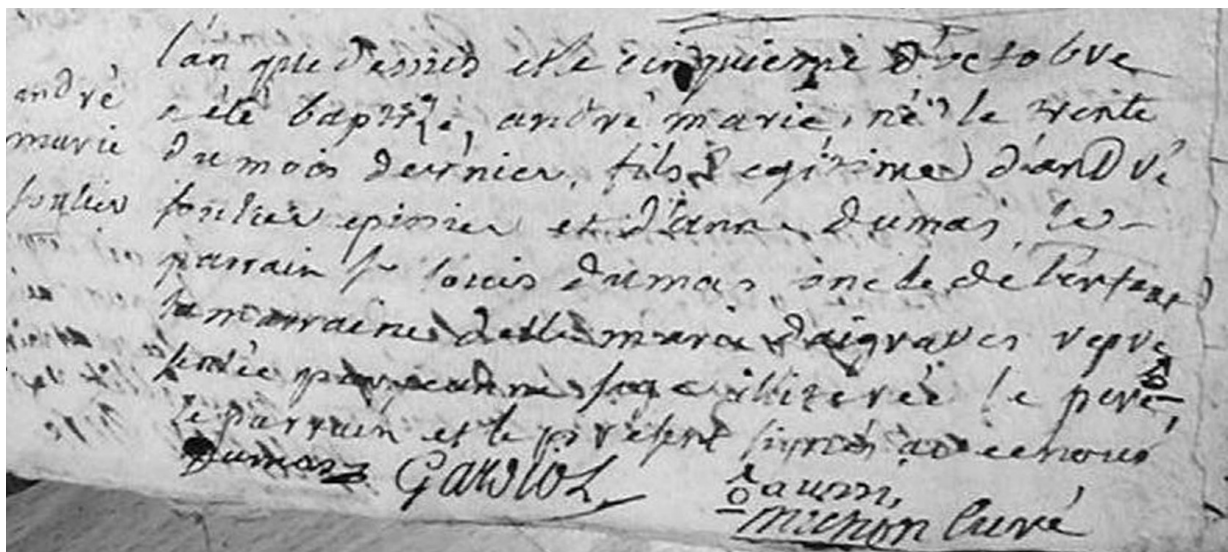 andré
marie
soulier
l'an que dessus et le cinquieme d'octobre
a été baptisé, andré marie, né le trente
du mois dernier, fils legitime d'andré
soulier et d'anne dumas, le
parrain sr louis dumas oncle de l'enfant
la marraine delle marie daigraves repre
sentée par jeanne illiterée le pere
le parrain et le présent signés avec nous
dumas Gardiol
michon curé